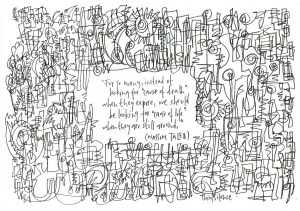 "For so many, instead of
looking for "cause of death"
when they expire, we should
be looking for "cause of life"
when they are still around.
(Nassim Taleb)